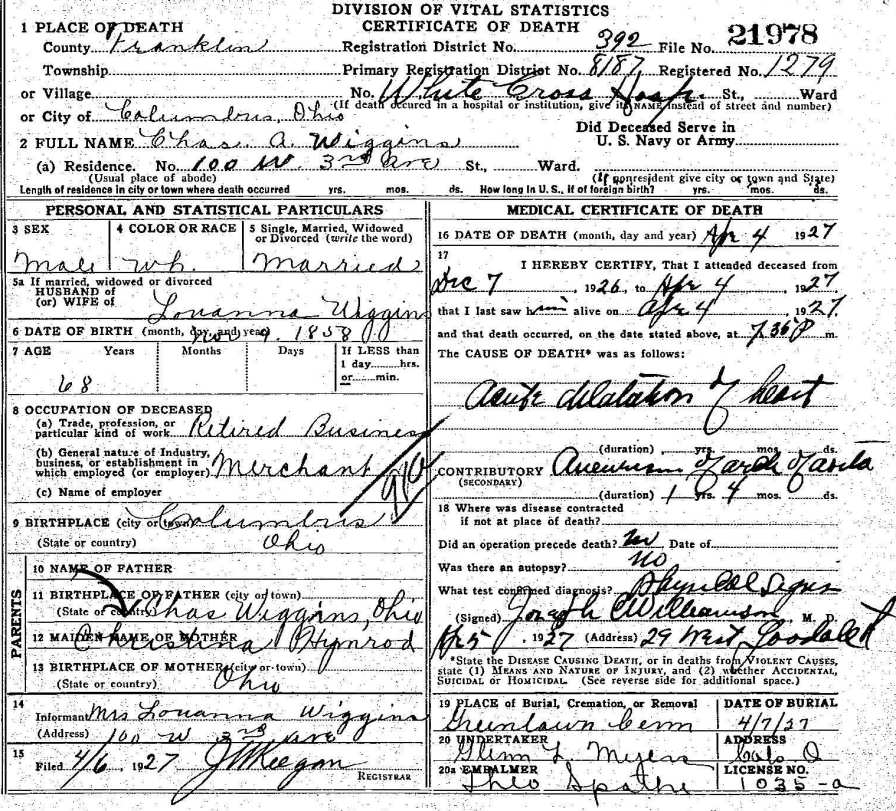 DIVISION OF VITAL STATISTICS
CERTIFICATE OF DEATH
1 PLACE OF DEATH
County of Franklin Registration District No. 392 File No. 21978
Township Primary Registration District No. 8187 Registered No. 1279
or Village No. White Cross Hosp. St., Ward
(If death occured in a hospital or institution, give its NAME instead of street and number)
or City of Columbus, Ohio
Did Deceased Serve in
U. S. Navy or Army
2 FULL NAME Chas. A. Wiggins
(a) Residence. No. 100 W. 3rd Ave St., Ward.
(Usual place of abode) (If nonresident give city or town and State)
Length of residence in city or town where death occurred yrs. mos. ds. How long in U. S., if of foreign birth? yrs. mos. ds.
PERSONAL AND STATISTICAL PARTICULARS
3 SEX
Male
4 COLOR OR RACE
Wh.
5 Single, Married, Widowed
or Divorced (write the word)
Married
5a If married, widowed or divorced
HUSBAND of
(or) WIFE of Louanna Wiggins
6 DATE OF BIRTH (month, day, and year) Nov 9. 1858
7 AGE Years Months Days
If LESS than
1 day........hrs.
or........min.
68
8 OCCUPATION OF DECEASED
(a) Trade, profession, or
particular kind of work Retired Business
(b) General nature of Industry,
business, or establishment in
which employed (or employer) Merchant
(c) Name of employer
9 BIRTHPLACE (city or town) Columbus
(State or country) Ohio
PARENTS
10 NAME OF FATHER
11 BIRTHPLACE OF FATHER (city or town)
(State or country) Chas Wiggins, Ohio
12 MAIDEN NAME OF MOTHER
Christina Hymrod
13 BIRTHPLACE OF MOTHER (city or town)
(State or country) Ohio
14
Informant Mrs Louanna Wiggins
(Address) 100 W 3rd Ave
15
Filed 4/6, 1927 J Keegan
REGISTRAR
MEDICAL CERTIFICATE OF DEATH
16 DATE OF DEATH (month, day and year) Apr 4 1927
17
I HEREBY CERTIFY, That I attended deceased from
Dec 7 1926, to Apr 4 1927
that I last saw him alive on Apr 4 1927
and that death occurred, on the date stated above, at 7,35 P m.
The CAUSE OF DEATH* was as follows:
Acute dilatation of heart
(duration) yrs. mos. ds.
CONTRIBUTORY Aneurism of arch of aorta
(SECONDARY)
(duration) 1 yrs. 4 mos. ds.
18 Where was disease contracted
if not at place of death?
Did an operation precede death? no Date of
Was there an autopsy? no
What test confirmed diagnosis? Physical Signs
(Signed) Joseph C Williamson, M. D.
Apr 5, 1927 (Address) 29 West Goodale St
*State the DISEASE CAUSING DEATH, or in deaths from VIOLENT CAUSES,
state (1) MEANS AND NATURE OF INJURY, and (2) whether ACCIDENTAL,
SUICIDAL or HOMICIDAL. (See reverse side for additional space.)
19 PLACE of Burial, Cremation, or Removal
Greenlawn Cem
DATE OF BURIAL
4/7/27
20 UNDERTAKER
Glenn L Myers
ADDRESS
Cols O
20a EMBALMER
Theo Spathe
LICENSE NO.
1035-a